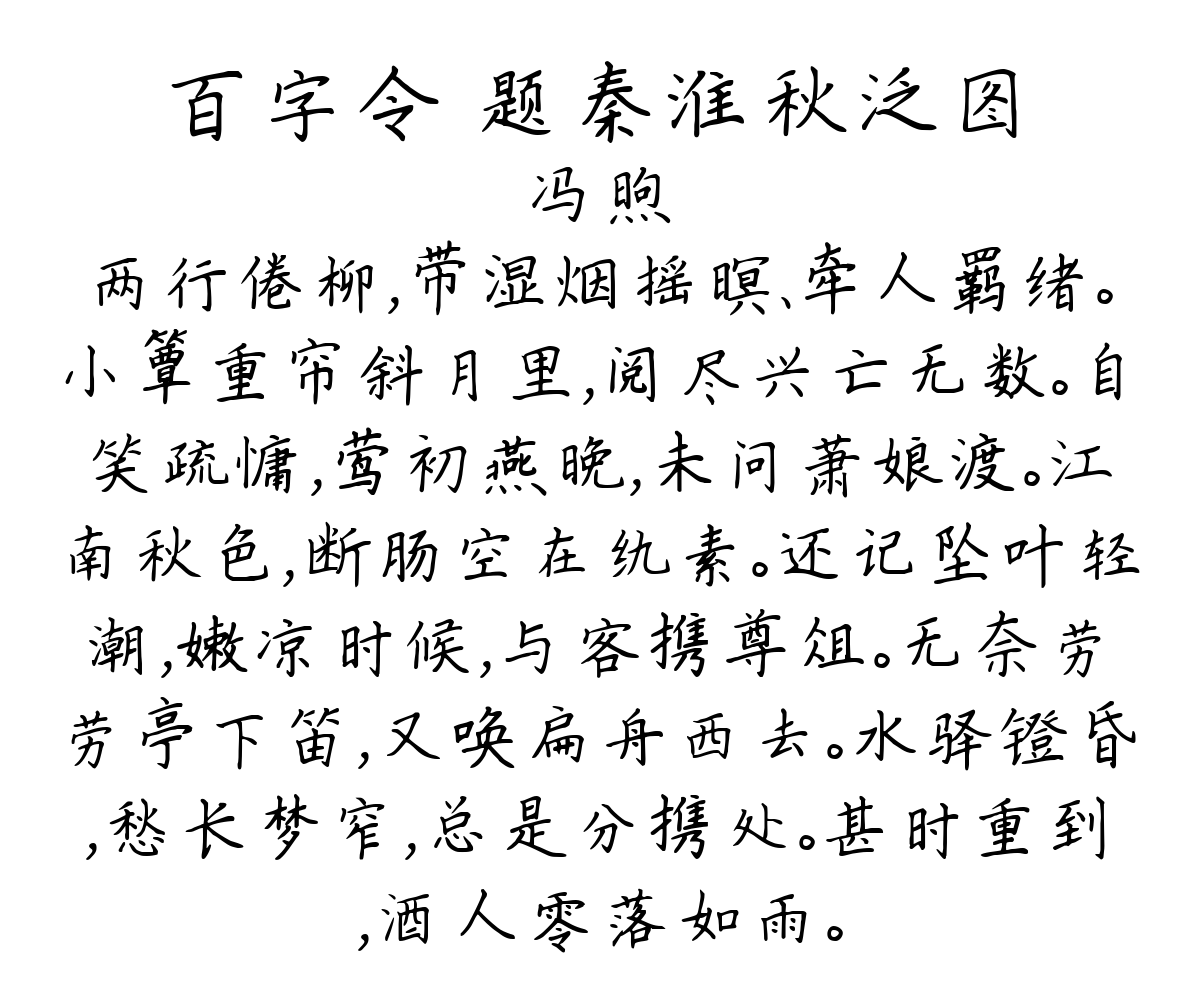 百字令 题秦淮秋泛图
冯煦
两行倦柳,带湿烟摇暝、牵人羁绪。
小簟重帘斜月里,阅尽兴亡无数。自
笑疏慵,莺初燕晚,未问萧娘渡。江
南秋色,断肠空在纨素。还记坠叶轻
潮,嫩凉时候,与客携尊俎。无奈劳
劳亭下笛,又唤扁舟西去。水驿镫昏
,愁长梦窄,总是分携处。甚时重到
,酒人零落如雨。